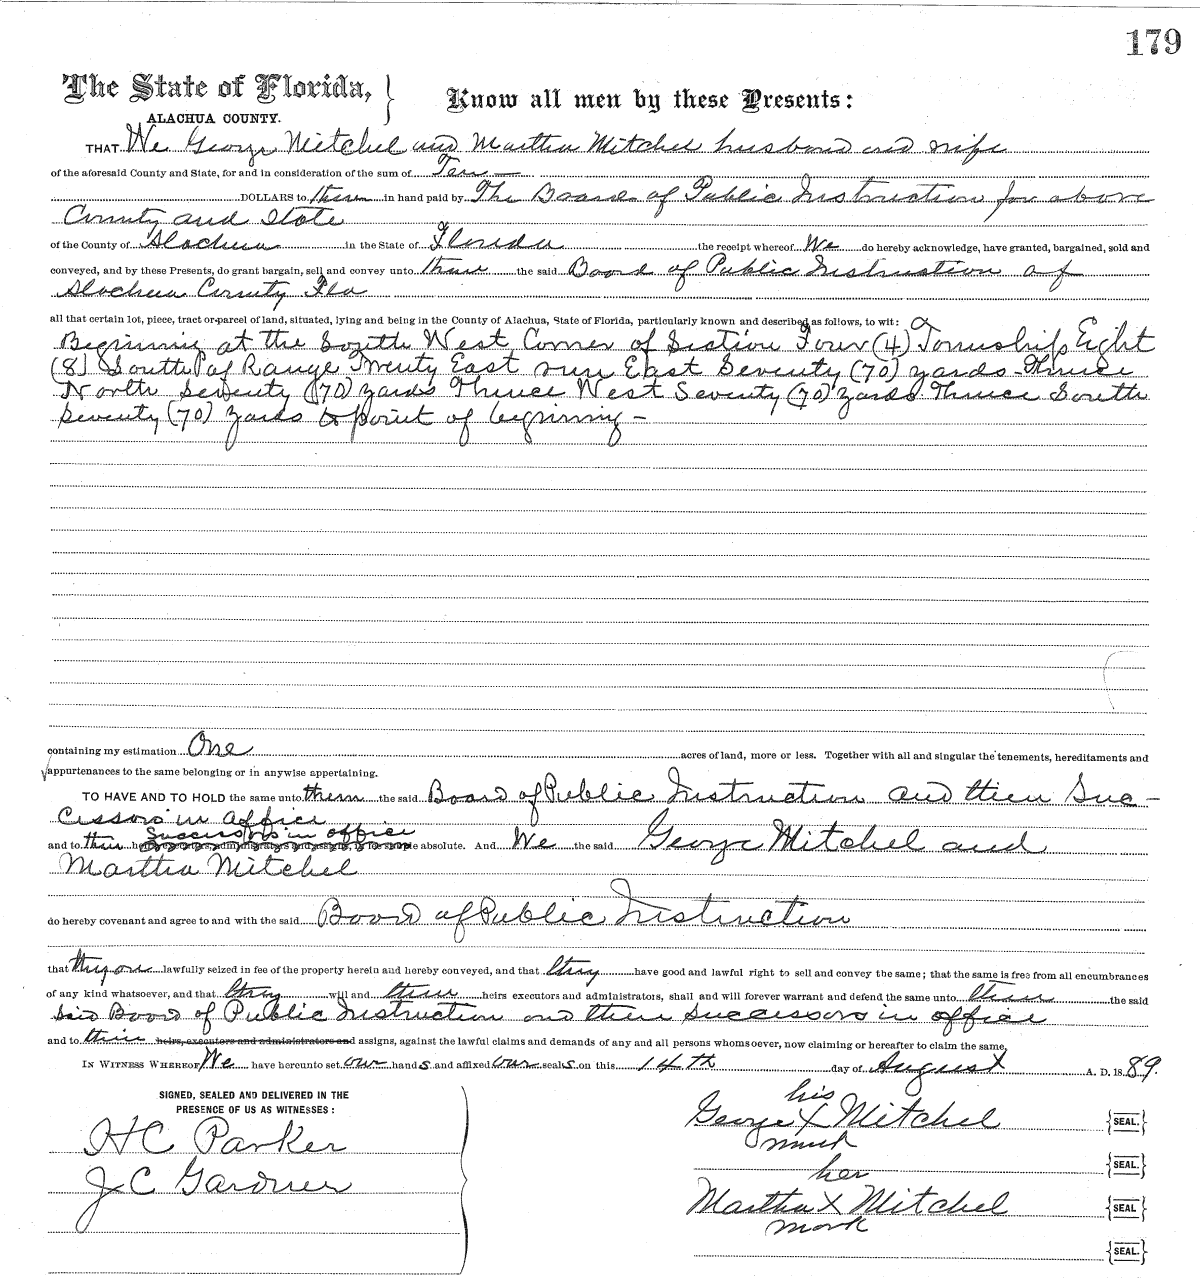 179
The State of Florida, } Know all men by these Presents:
ALACHUA COUNTY.
THAT We George Mitchel and Martha Mitchel husband and wife
of the aforesaid County and State, for and in consideration of the sum of Ten —
DOLLARS to them in hand paid by The Board of Public Instruction for above
County and State
of the County of Alachua in the State of Florida the receipt whereof We do hereby acknowledge, have granted, bargained, sold and
conveyed, and by these Presents, do grant bargain, sell and convey unto them the said Board of Public Instruction of
Alachua County Fla
all that certain lot, piece, tract or parcel of land, situated, lying and being in the County of Alachua, State of Florida, particularly known and described as follows, to wit:
Beginning at the South West Corner of Section Four (4) Township Eight
(8) South of Range Twenty East run East Seventy (70) yards - Thence
North Seventy (70) yards Thence West Seventy (70) yards Thence South
Seventy (70) yards to point of beginning —
containing my estimation One acres of land, more or less. Together with all and singular the tenements, hereditments and
appurtenances to the same belonging or in anywise appertaining.
TO HAVE AND TO HOLD the same unto them the said Board of Public Instruction and their Suc-
cessors in office
Successors in office
and to their absolute. And We the said George Mitchel and
Martha Mitchel
do hereby covenant and agree to and with the said Board of Public Instruction
that they are lawfully seized in fee of the property herein and hereby conveyed, and that they have good and lawful right to sell and convey the same; that the same is free from all encumbrances
of any kind whatsoever, and that they will and their heirs executors and administrators, shall and will forever warrant and defend the same unto them the said
Said Board of Public Instruction and their Successors in office
and to their heirs, executors and administrators and assigns, against the lawful claims and demands of any and all persons whomsoever, now claiming or hereafter to claim the same,
IN WITNESS WHEREOF We have hereunto set our hands and affixed our seals on this 14th day of August A. D. 1889.
SIGNED, SEALED AND DELIVERED IN THE
PRESENCE OF US AS WITNESSES:
H C Parker
J C Gardner
his
George X Mitchel {SEAL.}
mark
{SEAL.}
her
Martha X Mitchel {SEAL.}
mark
{SEAL.}